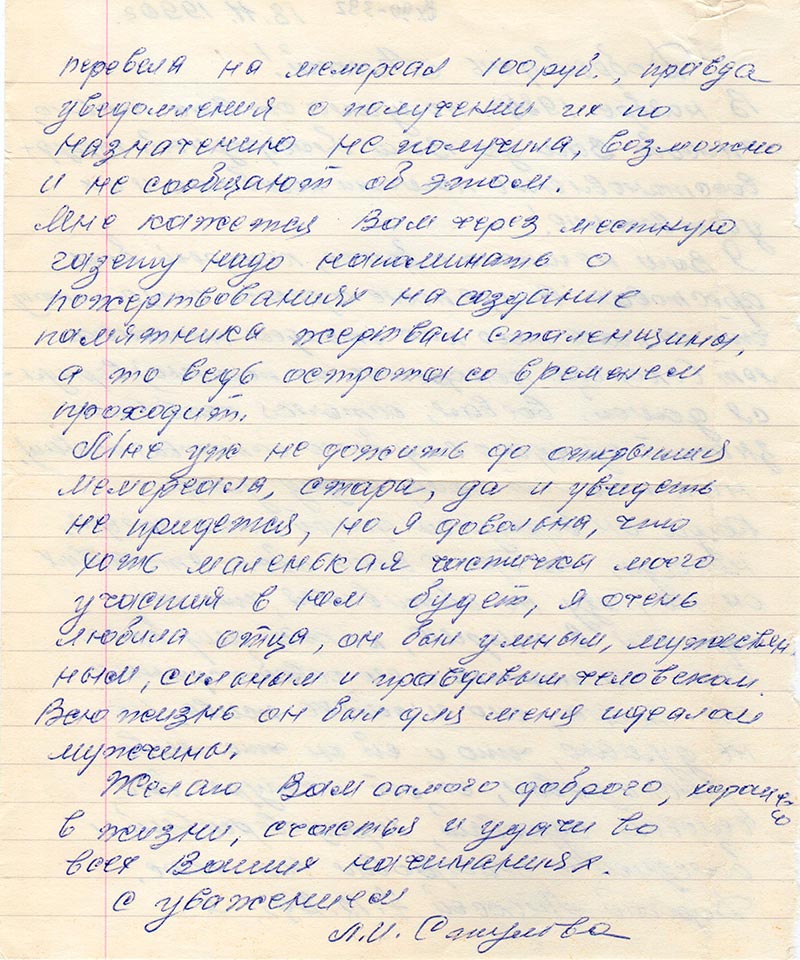 перевела на мемореал 100 руб., правда
уведомления о получении их по
назначению не получила, возможно
и не сообщают об этом.
Мне кажется Вам через местную
газету надо напоминать о
пожертвованиях на создание
памятника жертвам сталенщины,
а то ведь острота со временем
проходит.
Мне уж не дожить до открытия
мемореала, стара, да и увидеть
не придется, но я довольна, что
хоть маленькая частичка моего
участия в нем будет, я очень
любила отца, он был умным, мужествен
ным, сильным и правдивым человеком.
Всю жизнь он был для меня идеалом
мужчины.
Желаю Вам самого доброго, хорошего
в жизни, счастья и удачи во
всех Ваших начинаниях.
С уважением
Л.И.